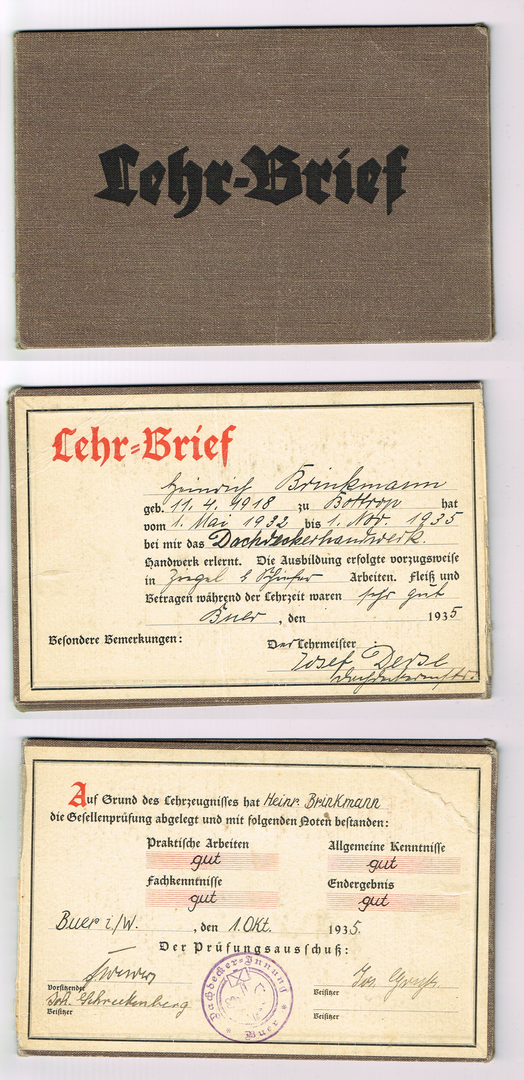 Lehr-Brief
Lehr-Brief
Heinrich Brinkmann
geb. 11. 4. 1918 zu Bottrop hat
vom 1. Mai 1932 bis 1. Nov. 1935
bei mir das Dachdeckerhandwerk
Handwerk erlernt. Die Ausbildung erfolgte vorzugsweise
in Ziegel & Schiefer Arbeiten. Fleiß und
Betragen während der Lehrzeit waren sehr gut
Buer, den 1935
Besondere Bemerkungen:
Der Lehrmeister
Josef
Auf Grund des Lehrzeugnisses hat Heinr. Brinkmann
die Gesellenprüfung abgelegt und mit folgenden Noten bestanden:
Praktische Arbeiten Allgemeine Kenntnisse
gut gut
Fachkenntnisse Endergebnis
gut gut
Buer i/W. , den 1. Okt. 1935.
Der Prüfungsausschuß:
Vorsitzender
Joh. Schreckenberg
Beisitzer
Jos.
Beisitzer
Beisitzer
Dachdecker-Innung
Buer